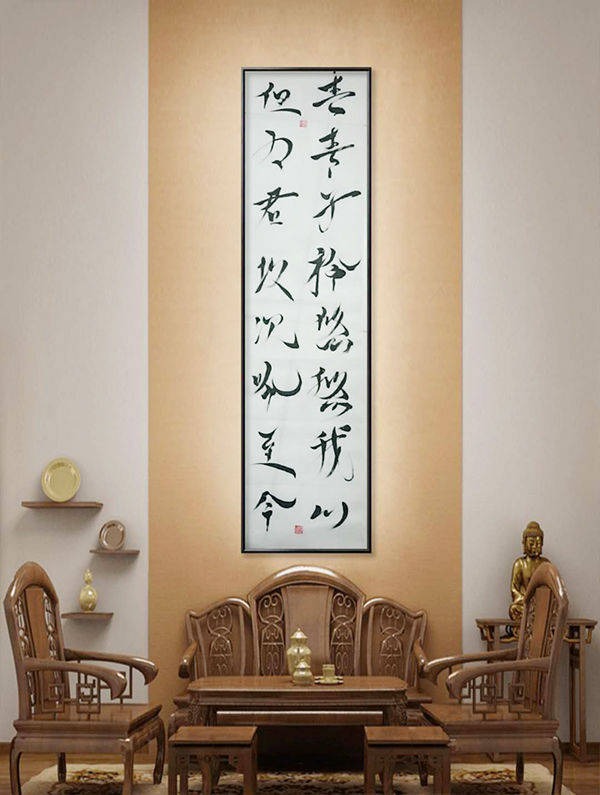 青青子衿悠悠我心
但为君故沉吟至今